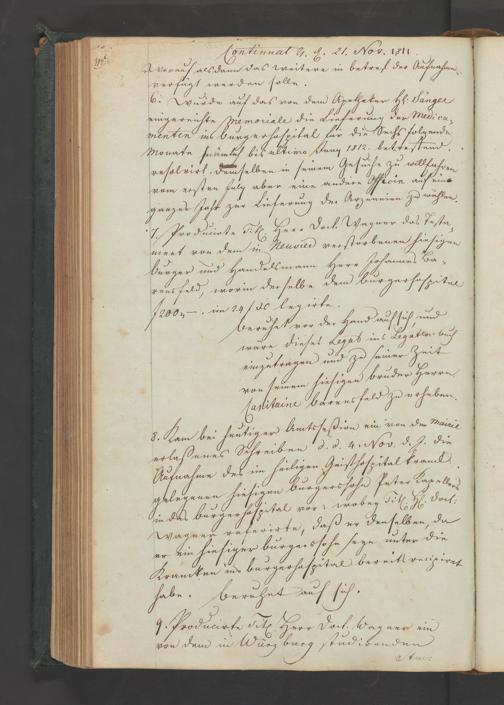 Continuat. d. d. 21. Nov. 1811
worauf alsdann das weitere in betref der Aufnahm
verfügt werden solle.
6. Wurde auf das von dem Apotheker H. Sänger
eingereichte Memoriale die Lieferung der Medica-
menten im Burgerhospital für die Sechs folgende
Monate bis ultimo Juny 1812. betreffend.
resolvirt. demselben in seinem Gesuche zu willfahren
vom ersten July aber eine andere Officin auf ein
ganzes Jahr zur Lieferung der Arzneien zu wählen.
7. Producirte Tit. Herr Doct. Wagner das Testa-
ment von dem in Neuwied verstorbenen hiesigen
Burger und Handelsmann Herr Johannes Ba-
rensfeld, worin derselbe dem Burgerhospital
f 200,–. im 24 f. legirte.
Beruhet vor der Hand auf sich, und
wäre dieses Legat ins Legatenbuch
einzutragen und zu seiner Zeit
von seinem hiesigen Bruder Herrn
Capitaine Barensfeld zu erheben.
8. Kam bei heutiger Amtssession ein von der Mairie
erlassenes Schreiben d. d. 4. Nov. d. J. die
Aufnahme des im Heiligen Geisthospital krank
gelegenen hiesigen Burgerssohn Peter Kapeller
in das Burgerhospital vor: wobey Tit. H. Doct.
Wagner referirte, daß er denselben, da
er ein hiesiger Burgerssohn seye unter die
Krancken ins Burgerhospital bereits recipirt
habe. Beruhet auf sich.
9. Producirte Tit. Herr Doct. Wagner ein
von dem in Würzburg studirenden